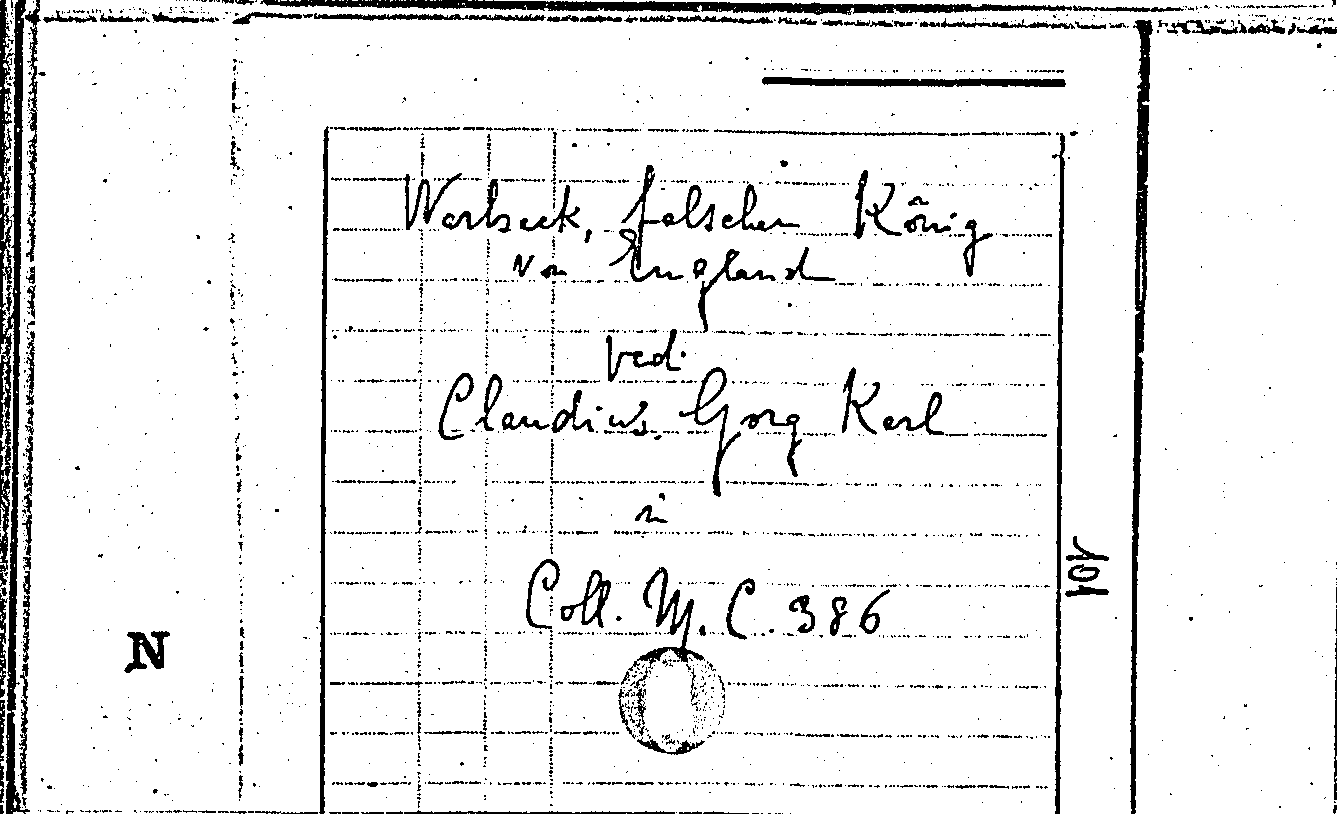 Warbeck, falscher König
von England
ved.
Claudius, Gorg Karl
in
Coll. M. C. 386
N
101